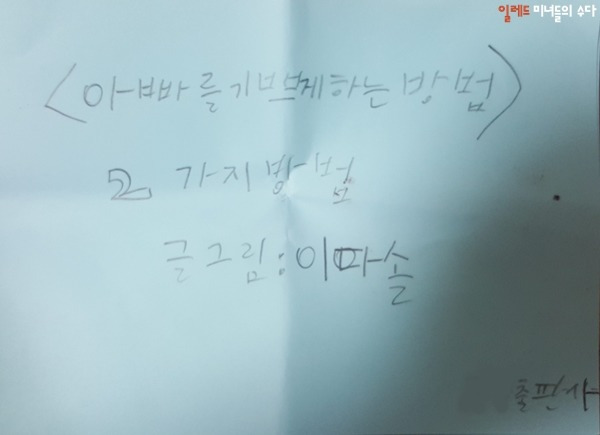 일레드 미녀들의 수다
<아빠를기쁘게하는방법>
2가지방법
글그림:이따솔
출판사